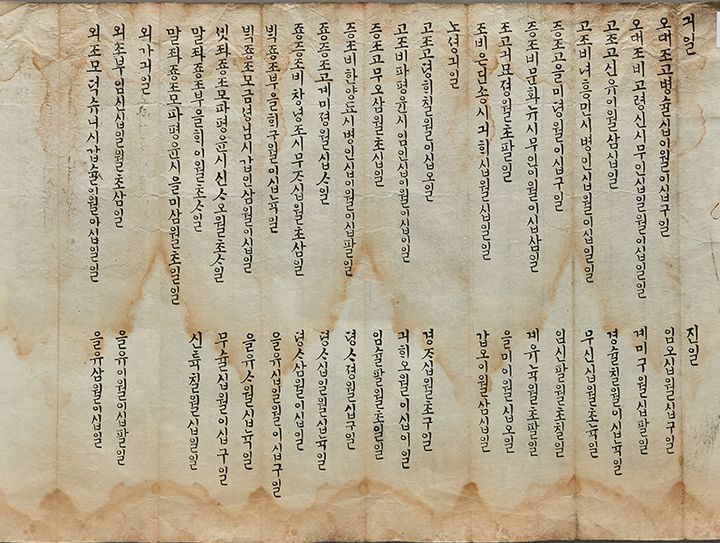 긔일 진일
오대조고병술십이월이십구일 임오십월십구일
오대조비고령신시무인십일월이십일일 계미구월십팔일
고조고신유이월삼십일 경술칠월이십뉵일
고조비녀흥민시병인십이월이십일일 무신십월초뉵일
증조고을미졍월이십구일 임신팔월초칠일
증조비문화뉴시무인이월이십삼일 계유뉵월초팔일
조고긔묘졍월초팔일 을미이월십오일
조비은진송시긔희십월십일일 갑오이월삼십일
노셩긔일
고조고졍희칠월이십오일 경ᄌ십월초구일
고조비파평윤시임인십이월이십이일 긔희오월이십이일
증조고무오삼월초십일 임슐팔월초일일
증조비한양됴시병인십이월이십팔일 졍ᄉ졍월십구일
죵증조고계미졍월십ᄉ일 졍ᄉ십일월십뉵일
죵증조비창녕조시무ᄌ십월초삼일 졍ᄉ삼월이십일
빅죵조부을희구월이십뉵일 을유십일월이십구일
빅죵조모금녕님시갑인삼월이십일 을유ᄉ월십뉵일
죵조모파평윤시신ᄉ오월초ᄉ일 무슐십월이십구일
말좌죵조부을희이월초ᄉ일 신튝칠월십일일
말좌죵조모파평윤시을미삼월초일일
외가긔일
외조부임신십일월초삼일 을유이월이십팔일
외조모덕슈니시갑이월이십일일 을유삼월이십일